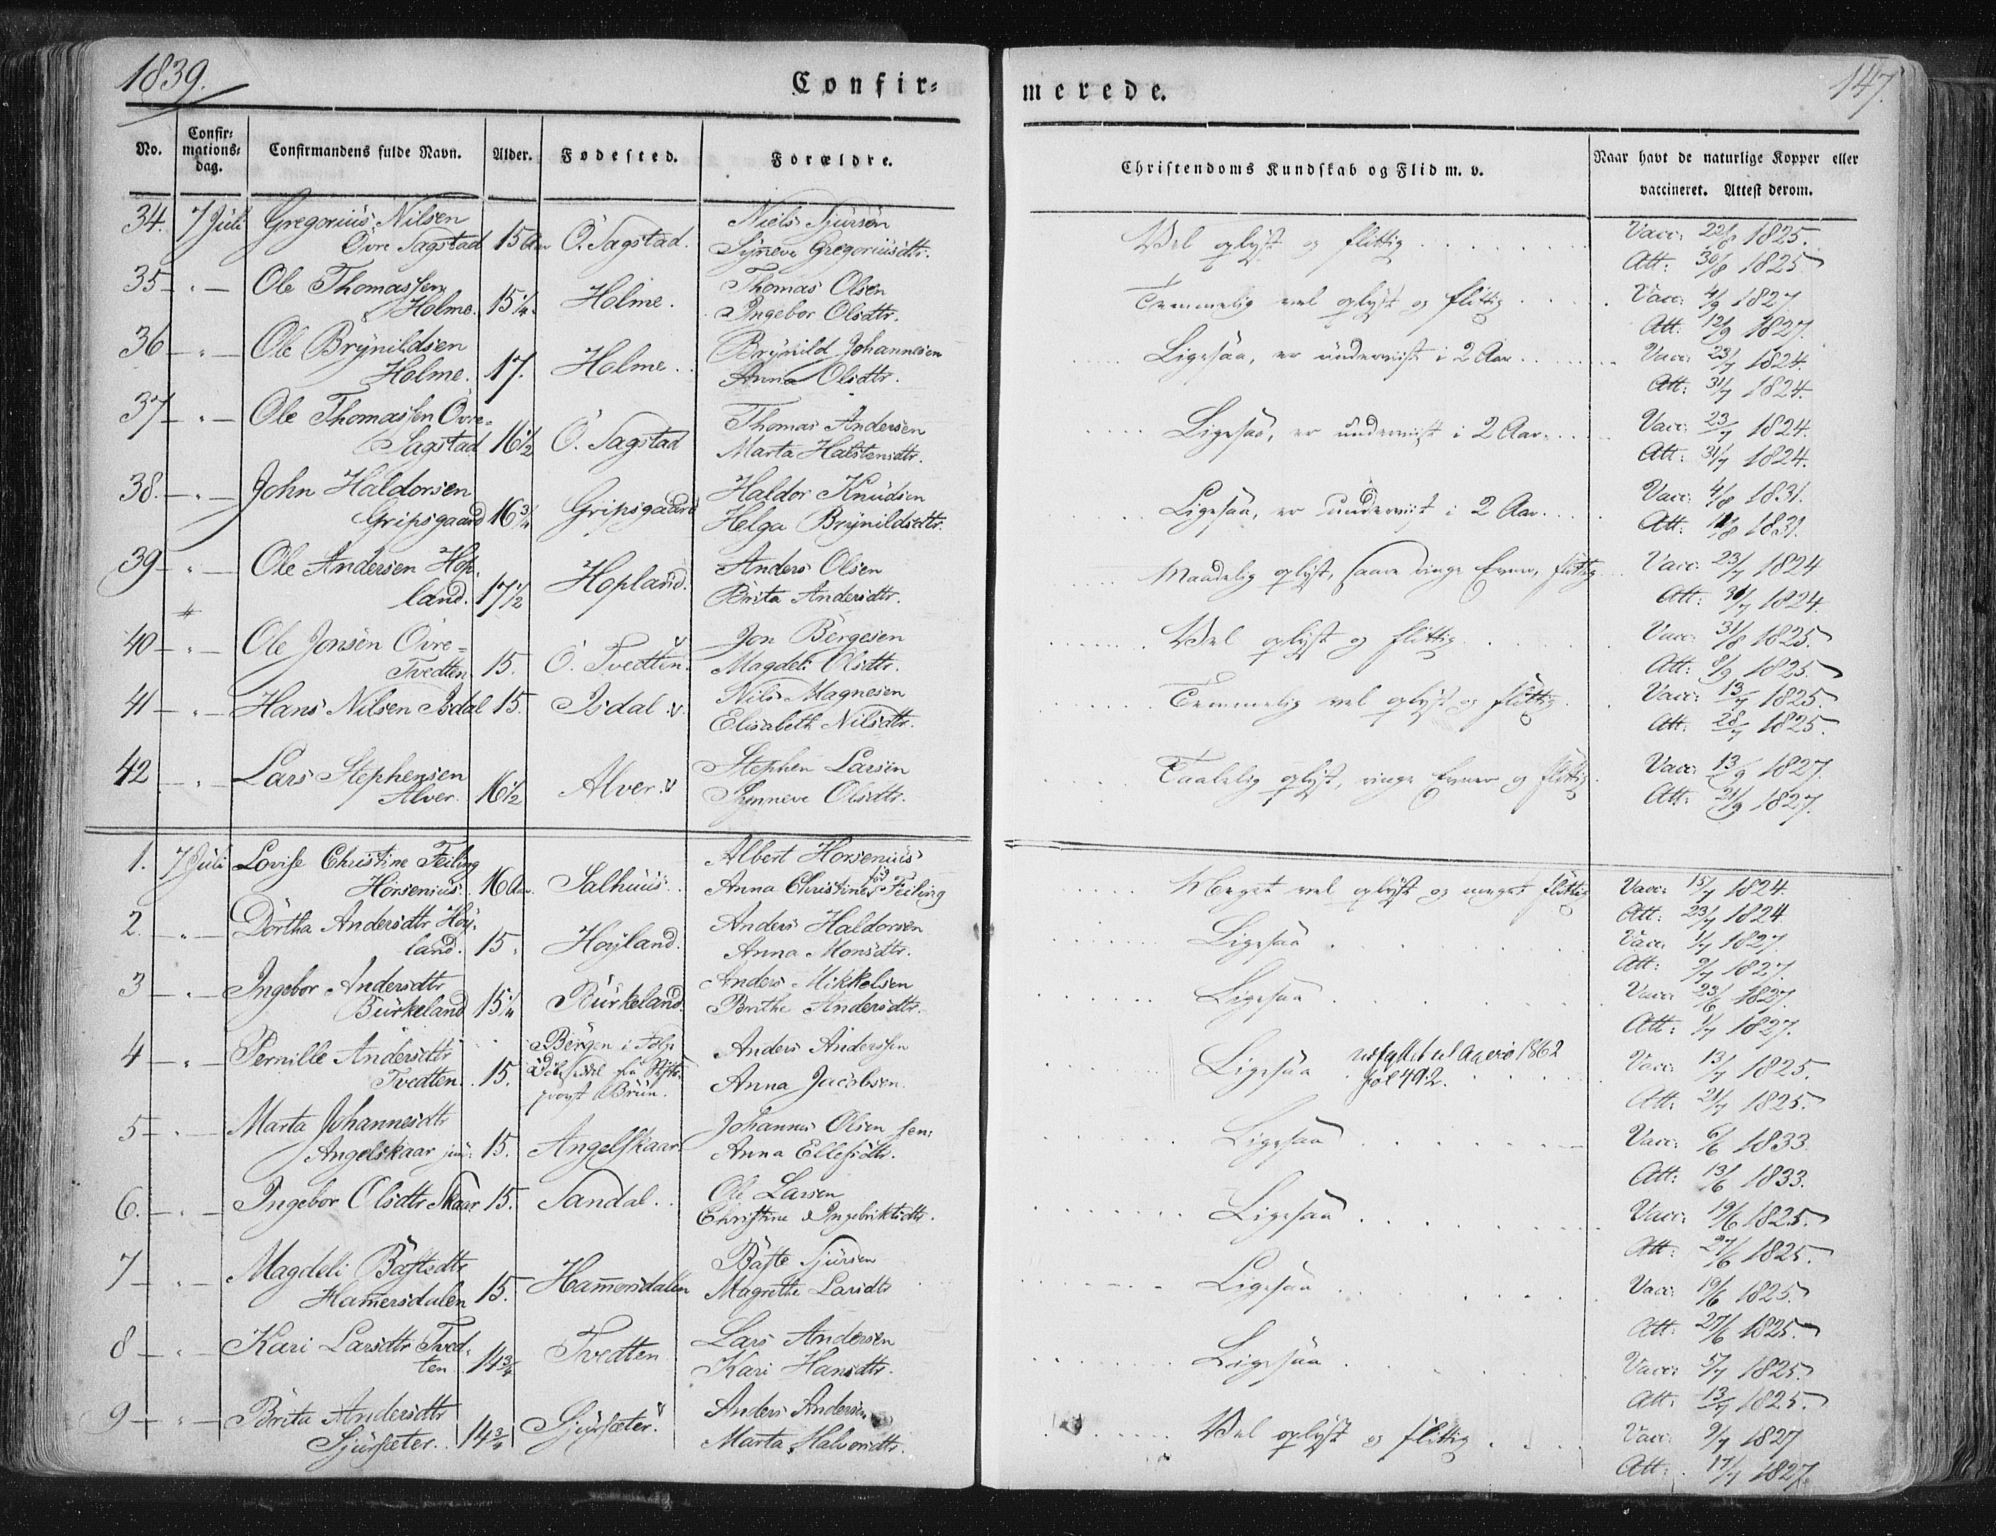 1839.
Confir-
merede.
147.
No.
Confir-
mations-
dag.
Confirmandens fulde Navn.
Alder.
Fødested.
Forældre.
Christendoms Kundskab og Flid m. v.
Naar havt de naturlige Kopper eller
vaccineret. Attest derom.
34. 7 Juli Gregorius Nilsen Niels Sjursøn Vacc: 22/8 1825.
Øvre Sagstad 15 Aar Ø. Sagstad. Synneve Gregoriusdtr. Vel oplyst og flittig Att: 30/8 1825
35 - " - Ole Thomassen Thomas Olsen Vacc: 4/9 1827
Holme. 15 1/4. Holme. Ingebor Olsdtr. Temmelig vel oplyst og flittig Att: 12/9 1827.
36 - " - Ole Brynildsen Brynild Johannesen Vacc: 23/7 1824.
Holme. 17. Holme. Anna Olsdtr. Ligesaa, er underviist i 2 Aar Att: 31/7 1824.
37 - " - Ole Thomassen Øvre- Thomas Andersen Vacc: 23/7 1824.
Sagstad 16 1/2 Ø. Sagstad Marta Halstensdtr. Ligesaa, er underviist i 2 Aar. Att: 31/7 1824.
38. - " - John Haldorsen Haldor Knudsen Vacc: 4/8 1831.
Gripsgaard 16 3/4 Gripsgaard Helga Brynildsdtr. Ligesaa, er underviist i 2 Aar. Att: 11/8 1831.
39 - " - Ole Andersen Hop- Anders Olsen Vacc: 23/7 1824
land. 17 1/2 Hopland. Brita Andersdtr. Maadelig oplyst, saare ringe Evner, flittig Att: 31/7 1824.
40 - " - Ole Jonsen Øvre- Jon Børgesen Vacc: 31/8 1825
Tvedten 15. Ø. Tvedten. Magdeli Olsdtr. Vel oplyst og flittig Att: 8/9 1825
41 - " - Hans Nilsen Isdal 15. Isdal Nils Magnesen Vacc: 13/7 1825
Elisabeth Nilsdtr. Temmelig vel oplyst og flittig Att: 28/7 1825.
42 - " - Lars Stephensen Stephen Larsen Vacc: 13/9 1827.
Alver. 16 1/2 Alver. Synneve Olsdtr. Taalelig oplyst, ringe Evner og flittig Att: 21/9 1827.
1. 7 Juli Lovise Christine Feiling Albert Horsenius
Horsenius. 16 Aar. Salhuus. Anna Christine Feiling Meget vel oplyst og meget flittig Vacc: 15/7 1824.
Att: 23/7 1824.
2. - " - Dortha Andersdtr Høy- Anders Haldorsen Vacc: 1/7 1827.
land. 15. Høyland. Anna Monsdtr. Ligesaa Att: 9/7 1827.
3 - " - Ingebor Andersdtr Anders Mikkelsen Vacc: 23/6 1827.
Burkeland 15 1/4 Burkeland. Brithe Andersdtr. Ligesaa Att: 1/7 1827.
4 - " - Pernille Andersdtr Bergen i Følge Anders Anderssen
Tvedten. 15. Døbeseddel fra Stifts- Anna Jacobsen. Ligesaa Vacc: 13/7 1825.
provst Brun. fol 492. 1862 Att: 21/7 1825.
5 - " - Marta Johannesdtr Johannes Olsen sen: Vacc: 6/6 1833
Angelskaar jun: 15. Angelskaar. Anna Ellefsdtr. Ligesaa Att: 13/6 1833.
6. - " - Ingebor Olsdtr Skaar 15. Sandal. Ole Larsen Vacc: 19/6 1825.
Christine Ingebriktsdtr. Ligesaa Att: 27/6 1825.
7 - " - Magdeli Bastsdtr Baste Sjursen Vacc: 19/6 1825.
Hamersdalen 15. Hamersdalen Magrethe Larsdtr Ligesaa Att: 27/6 1825.
8 - " - Kari Larsdtr Tved- Lars Andersen Vacc: 5/7 1825.
ten 14 3/4 Tvedten Kari Hansdtr. Ligesaa Att: 13/7 1825.
9 - " - Brita Andersdtr Anders Andersen Vacc: 9/7 1827
Sjursæter. 14 3/4 Sjursæter. Marta Halvorsdtr. Vel oplyst og flittig Att: 17/7 1827.